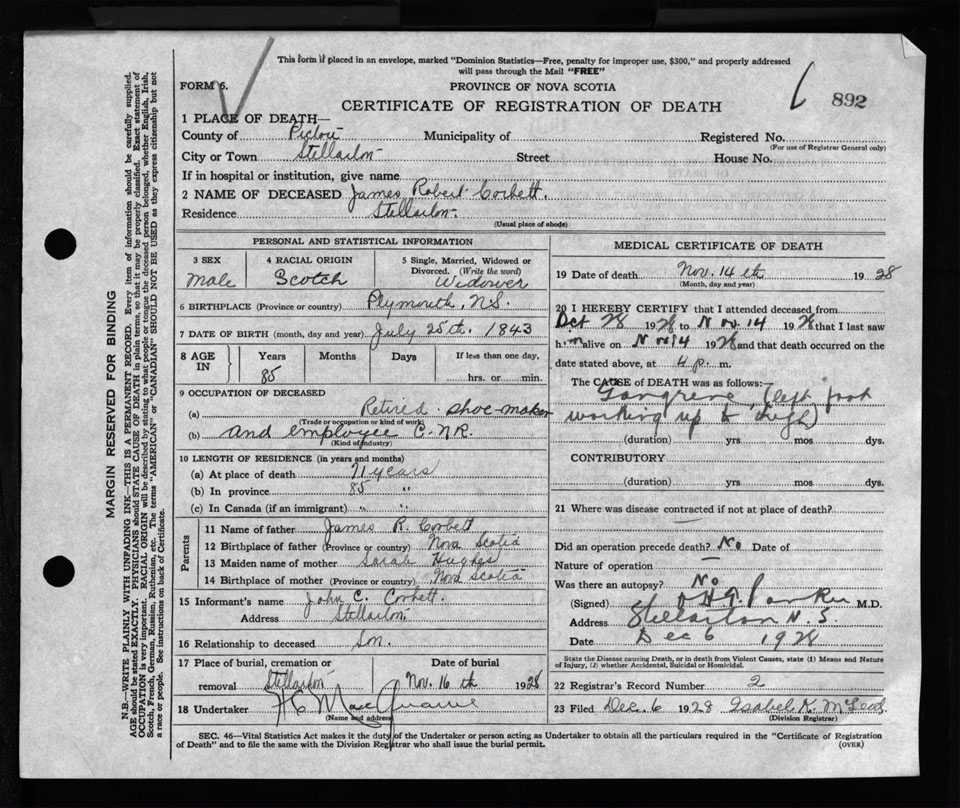 This form if placed in an envelope, marked "Dominion Statistics—Free, penalty for improper use, $300," and properly addressed
will pass through the Mail "FREE"
FORM 6.
PROVINCE OF NOVA SCOTIA
892
CERTIFICATE OF REGISTRATION OF DEATH
1 PLACE OF DEATH—
County of Pictou Municipality of Registered No.
(For use of Registrar General only)
City or Town Stellarton Street House No.
If in hospital or institution, give name
2 NAME OF DECEASED James Robert Corbett.
Residence Stellarton.
(Usual place of abode)
MARGIN RESERVED FOR BINDING
N.B.—WRITE PLAINLY WITH UNFADING INK—THIS IS A PERMANENT RECORD. Every item of information should be carefully supplied.
AGE should be stated EXACTLY. PHYSICIANS should STATE CAUSE OF DEATH in plain terms, so that it may be properly classified. Exact statement of
OCCUPATION is very important. RACIAL ORIGIN will be described by stating to what people or tongue the deceased person belonged, whether English, Irish,
Scotch, French, German, Russian, Ruthenian, etc. The terms "AMERICAN" or "CANADIAN" SHOULD NOT BE USED as they express citizenship but not
a race or people. See instructions on back of Certificate.
PERSONAL AND STATISTICAL INFORMATION
3 SEX 4 RACIAL ORIGIN 5 Single, Married, Widowed or
Divorced. (Write the word)
Male Scotch Widower
6 BIRTHPLACE (Province or country) Plymouth, N.S.
7 DATE OF BIRTH (month, day and year) July 25th. 1843
8 AGE IN Years Months Days If less than one day,
85 hrs. or min.
9 OCCUPATION OF DECEASED
(a) Retired shoe-maker
(Trade or occupation or kind of work)
(b) and employee C.N.R.
(Kind of industry)
10 LENGTH OF RESIDENCE (in years and months)
(a) At place of death 71 years
(b) In province 85 "
(c) In Canada (if an immigrant) " "
Parents
11 Name of father James R. Corbett
12 Birthplace of father (Province or country) Nova Scotia
13 Maiden name of mother Sarah
14 Birthplace of mother (Province or country) Nova Scotia
15 Informant's name John C. Corbett.
Address Stellarton.
16 Relationship to deceased Son.
17 Place of burial, cremation or Date of burial
removal Stellarton Nov. 16 th 1928
18 Undertaker
(Name and address)
MEDICAL CERTIFICATE OF DEATH
19 Date of death Nov. 14 th 1928
(Month, day and year)
20 I HEREBY CERTIFY that I attended deceased from
Oct 28 1928 to Nov. 14 1928 that I last saw
him alive on Nov 14 1928 and that death occurred on the
date stated above, at 4 p. m.
The CAUSE of DEATH was as follows:—
Gangrene, (left foot
working up to thigh)
(duration) yrs mos dys.
CONTRIBUTORY
(duration) yrs mos dys.
21 Where was disease contracted if not at place of death?
Did an operation precede death? No Date of
Nature of operation —
Was there an autopsy? No
(Signed) Parker M.D.
Address Stellarton N.S.
Date Dec 6 1928
State the Disease causing Death, or in death from Violent Causes, state (1) Means and Nature
of Injury, (2) whether Accidental, Suicidal or Homicidal.
22 Registrar's Record Number 2
23 Filed Dec. 6 1928 Isabel K. McLeod
(Division Registrar)
SEC. 46—Vital Statistics Act makes it the duty of the Undertaker or person acting as Undertaker to obtain all the particulars required in the "Certificate of Registration
of Death" and to file the same with the Division Registrar who shall issue the burial permit.
(OVER)